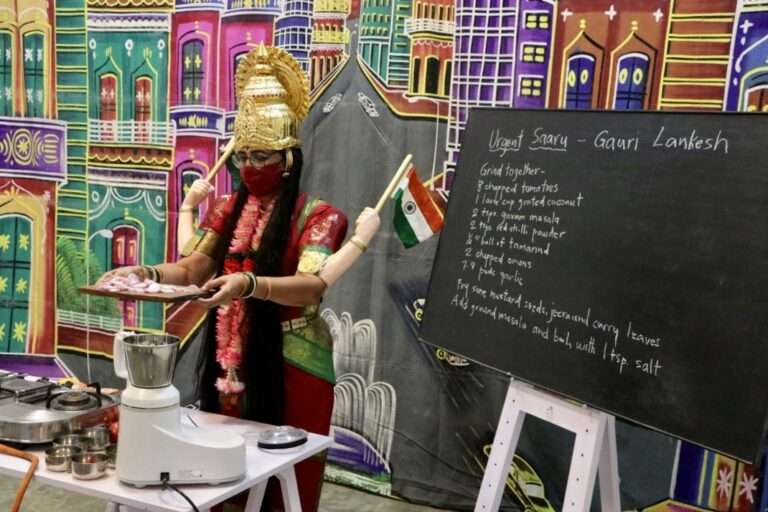 Urgent Saaru - Gauri Lankesh
Grind together-
8 chopped tomatoes
1 large cup grated coconut
2 tsps garam masala
2 tsps red chilli powder
ball of tamarind
2 chopped onions
7-8 pods garlic
Fry some mustard seeds, jeera and curry leaves
Add ground masala and boil with 1 tsp salt